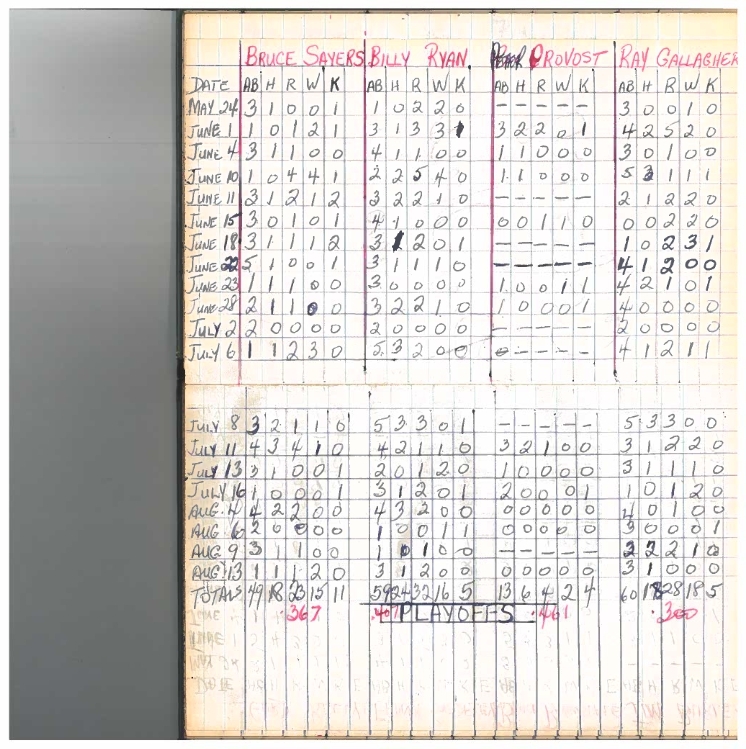 BRUCE SAYERS BILLY RYAN PROVOST RAY GALLAGHER
DATE AB H R W K AB H R W K AB H R W K AB H R W K
MAY 24 3 1 0 0 1 1 0 2 2 0 - - - - - 3 0 0 1 0
JUNE 1 1 0 1 2 1 3 1 3 3 1 3 2 2 0 1 4 2 5 2 0
JUNE 4 3 1 1 0 0 4 1 1 0 0 1 1 0 0 0 3 0 1 0 0
JUNE 10 1 0 4 4 1 2 2 5 4 0 1 1 0 0 0 5 3 1 1 1
JUNE 11 3 1 2 1 2 3 2 2 1 0 - - - - - 2 1 2 2 0
JUNE 15 3 0 1 0 1 4 1 0 0 0 0 0 1 1 0 0 0 2 2 0
JUNE 18 3 1 1 1 2 3 1 2 0 1 - - - - - 1 0 2 3 1
JUNE 22 5 1 0 0 1 3 1 1 1 0 - - - - - 4 1 2 0 0
JUNE 23 1 1 1 0 0 3 0 0 0 0 1 0 0 1 1 4 2 1 0 1
JUNE 28 2 1 1 0 0 3 2 2 1 0 1 0 0 0 1 4 0 0 0 0
JULY 2 2 0 0 0 0 2 0 0 0 0 - - - - 2 0 0 0 0
JULY 6 1 1 2 3 0 5 3 2 0 0 0 - - - - 4 1 2 1 1
JULY 8 3 2 1 1 0 5 3 3 0 1 - - - - - 5 3 3 0 0
JULY 11 4 3 4 1 0 4 2 1 1 0 3 2 1 0 0 3 1 2 2 0
JULY 13 3 1 0 0 1 2 0 1 2 0 1 0 0 0 0 3 1 1 1 0
JULY 16 1 0 0 0 1 3 1 2 0 1 2 0 0 0 1 1 0 1 2 0
AUG. 4 4 2 2 0 0 4 3 2 0 0 0 0 0 0 0 4 0 1 0 0
AUG 6 2 0 0 0 0 1 0 0 1 1 0 0 0 0 0 3 0 0 0 1
AUG 9 3 1 1 0 0 1 0 1 0 0 - - - - - 2 2 2 1 0
AUG 13 1 1 1 2 0 3 1 2 0 0 0 0 0 0 0 3 1 0 0 0
TOTALS 49 18 23 15 11 59 24 32 16 5 13 6 4 2 4 60 18 28 18 5
.367 .407 PLAYOFFS .461 .300